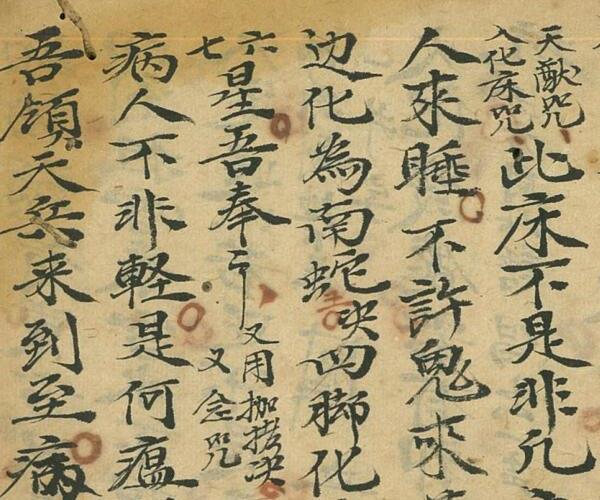 天猷咒
入化床咒
此床不是非凡
人來睡不許鬼來
边化為南蛇决四脚化
六七星吾奉
又用枷拷决
又念咒
病人不非軽是何瘟
吾領天兵来到至病